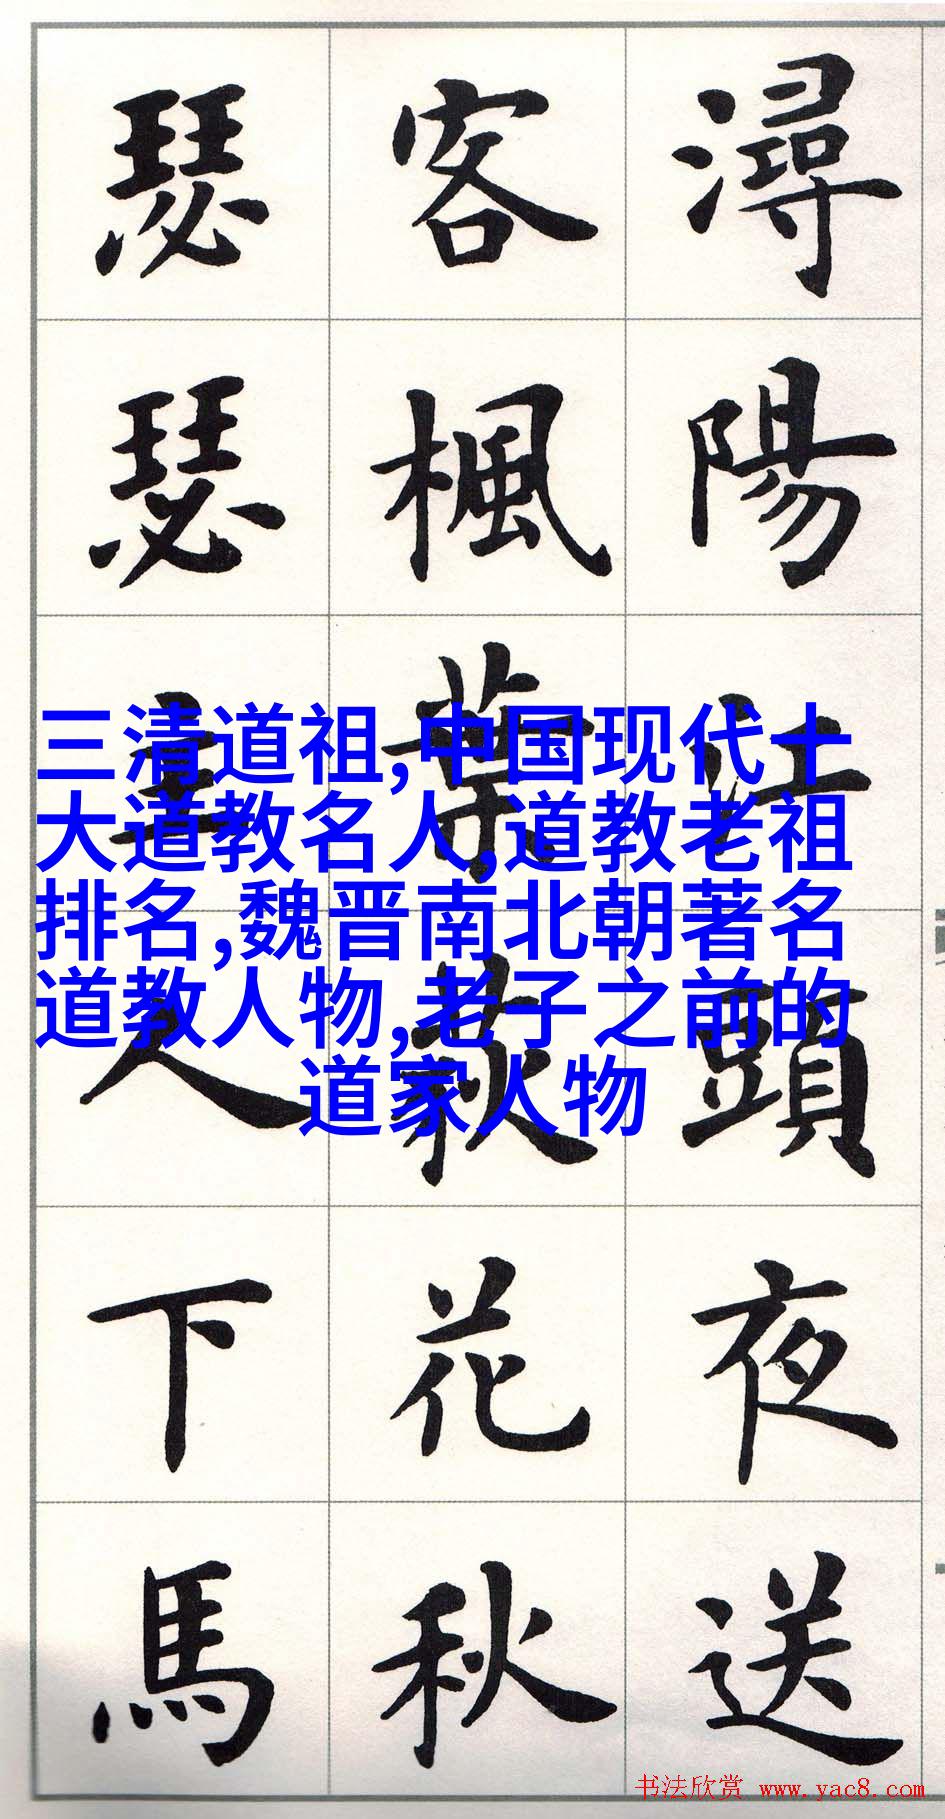 潯陽江頭夜送
客楓葉荻花秋
瑟瑟主人下馬
三清道祖,中国现代十
大道教名人,道教老祖
排名,魏晋南北朝著名
道教人物,老子之前的
道家人物
书法欣赏 www.yac8.com